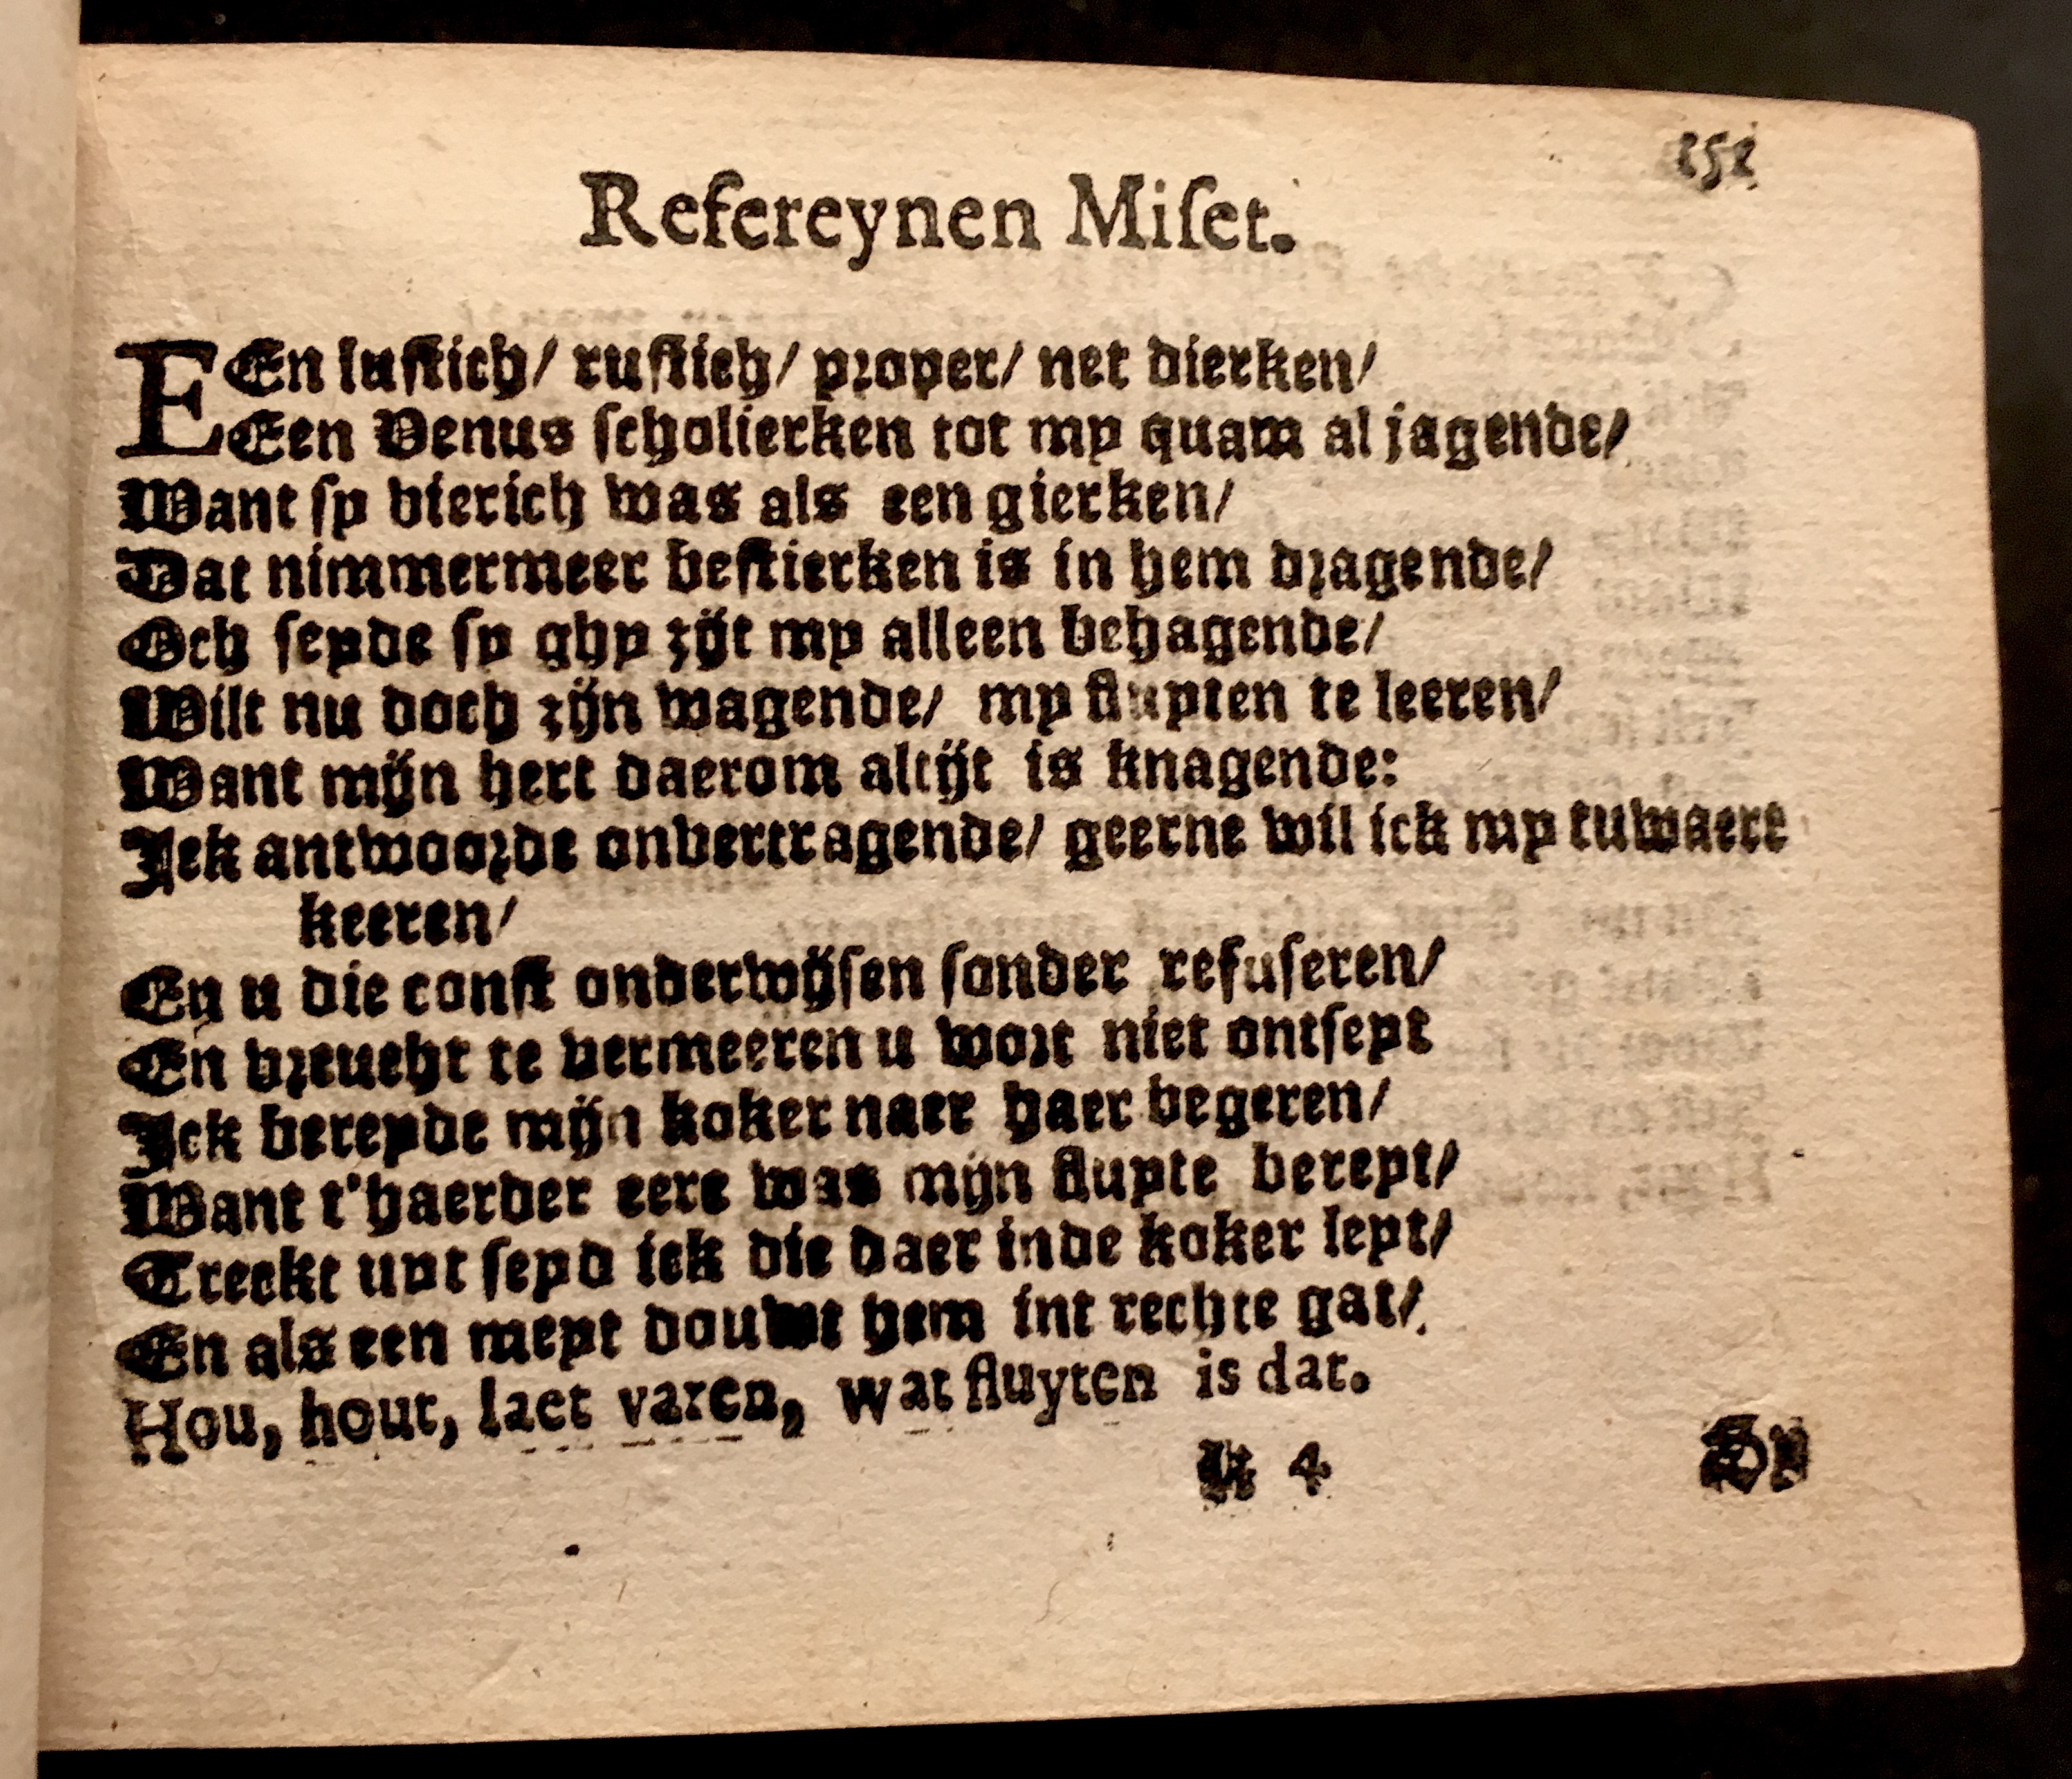 151
Refereynen Miſet.
EEn luſtich/ ruſtich/ proper/ net dierken/
Een Venus ſcholierken tot my quam al jagende/
Want ſy vierich was als een gierken/
Dat nimmermeer beſtierken is in hem dragende/
Och ſeyde ſy ghy zijt my alleen behagende/
Wilt nu doch zijn wagende/ my fluyten te leeren/
Want mijn hert daerom altijt is knagende:
Ick antwoorde onvertragende/ geerne wil ick my tuwaert
keeren/
En u die conſt onderwijſen ſonder refuſeren/
En vreucht te vermeeren u wort niet ontſeyt
Ick bereyde mijn koker naer haer begeren/
Want t'haerder eere was mijn fluyte bereyt/
Treckt uyt ſeyd ick die daer inde koker leyt/
En als een meyt douwt hem int rechte gat/
Hou, hout, laet varen, wat fluyten is dat.
4
Sy